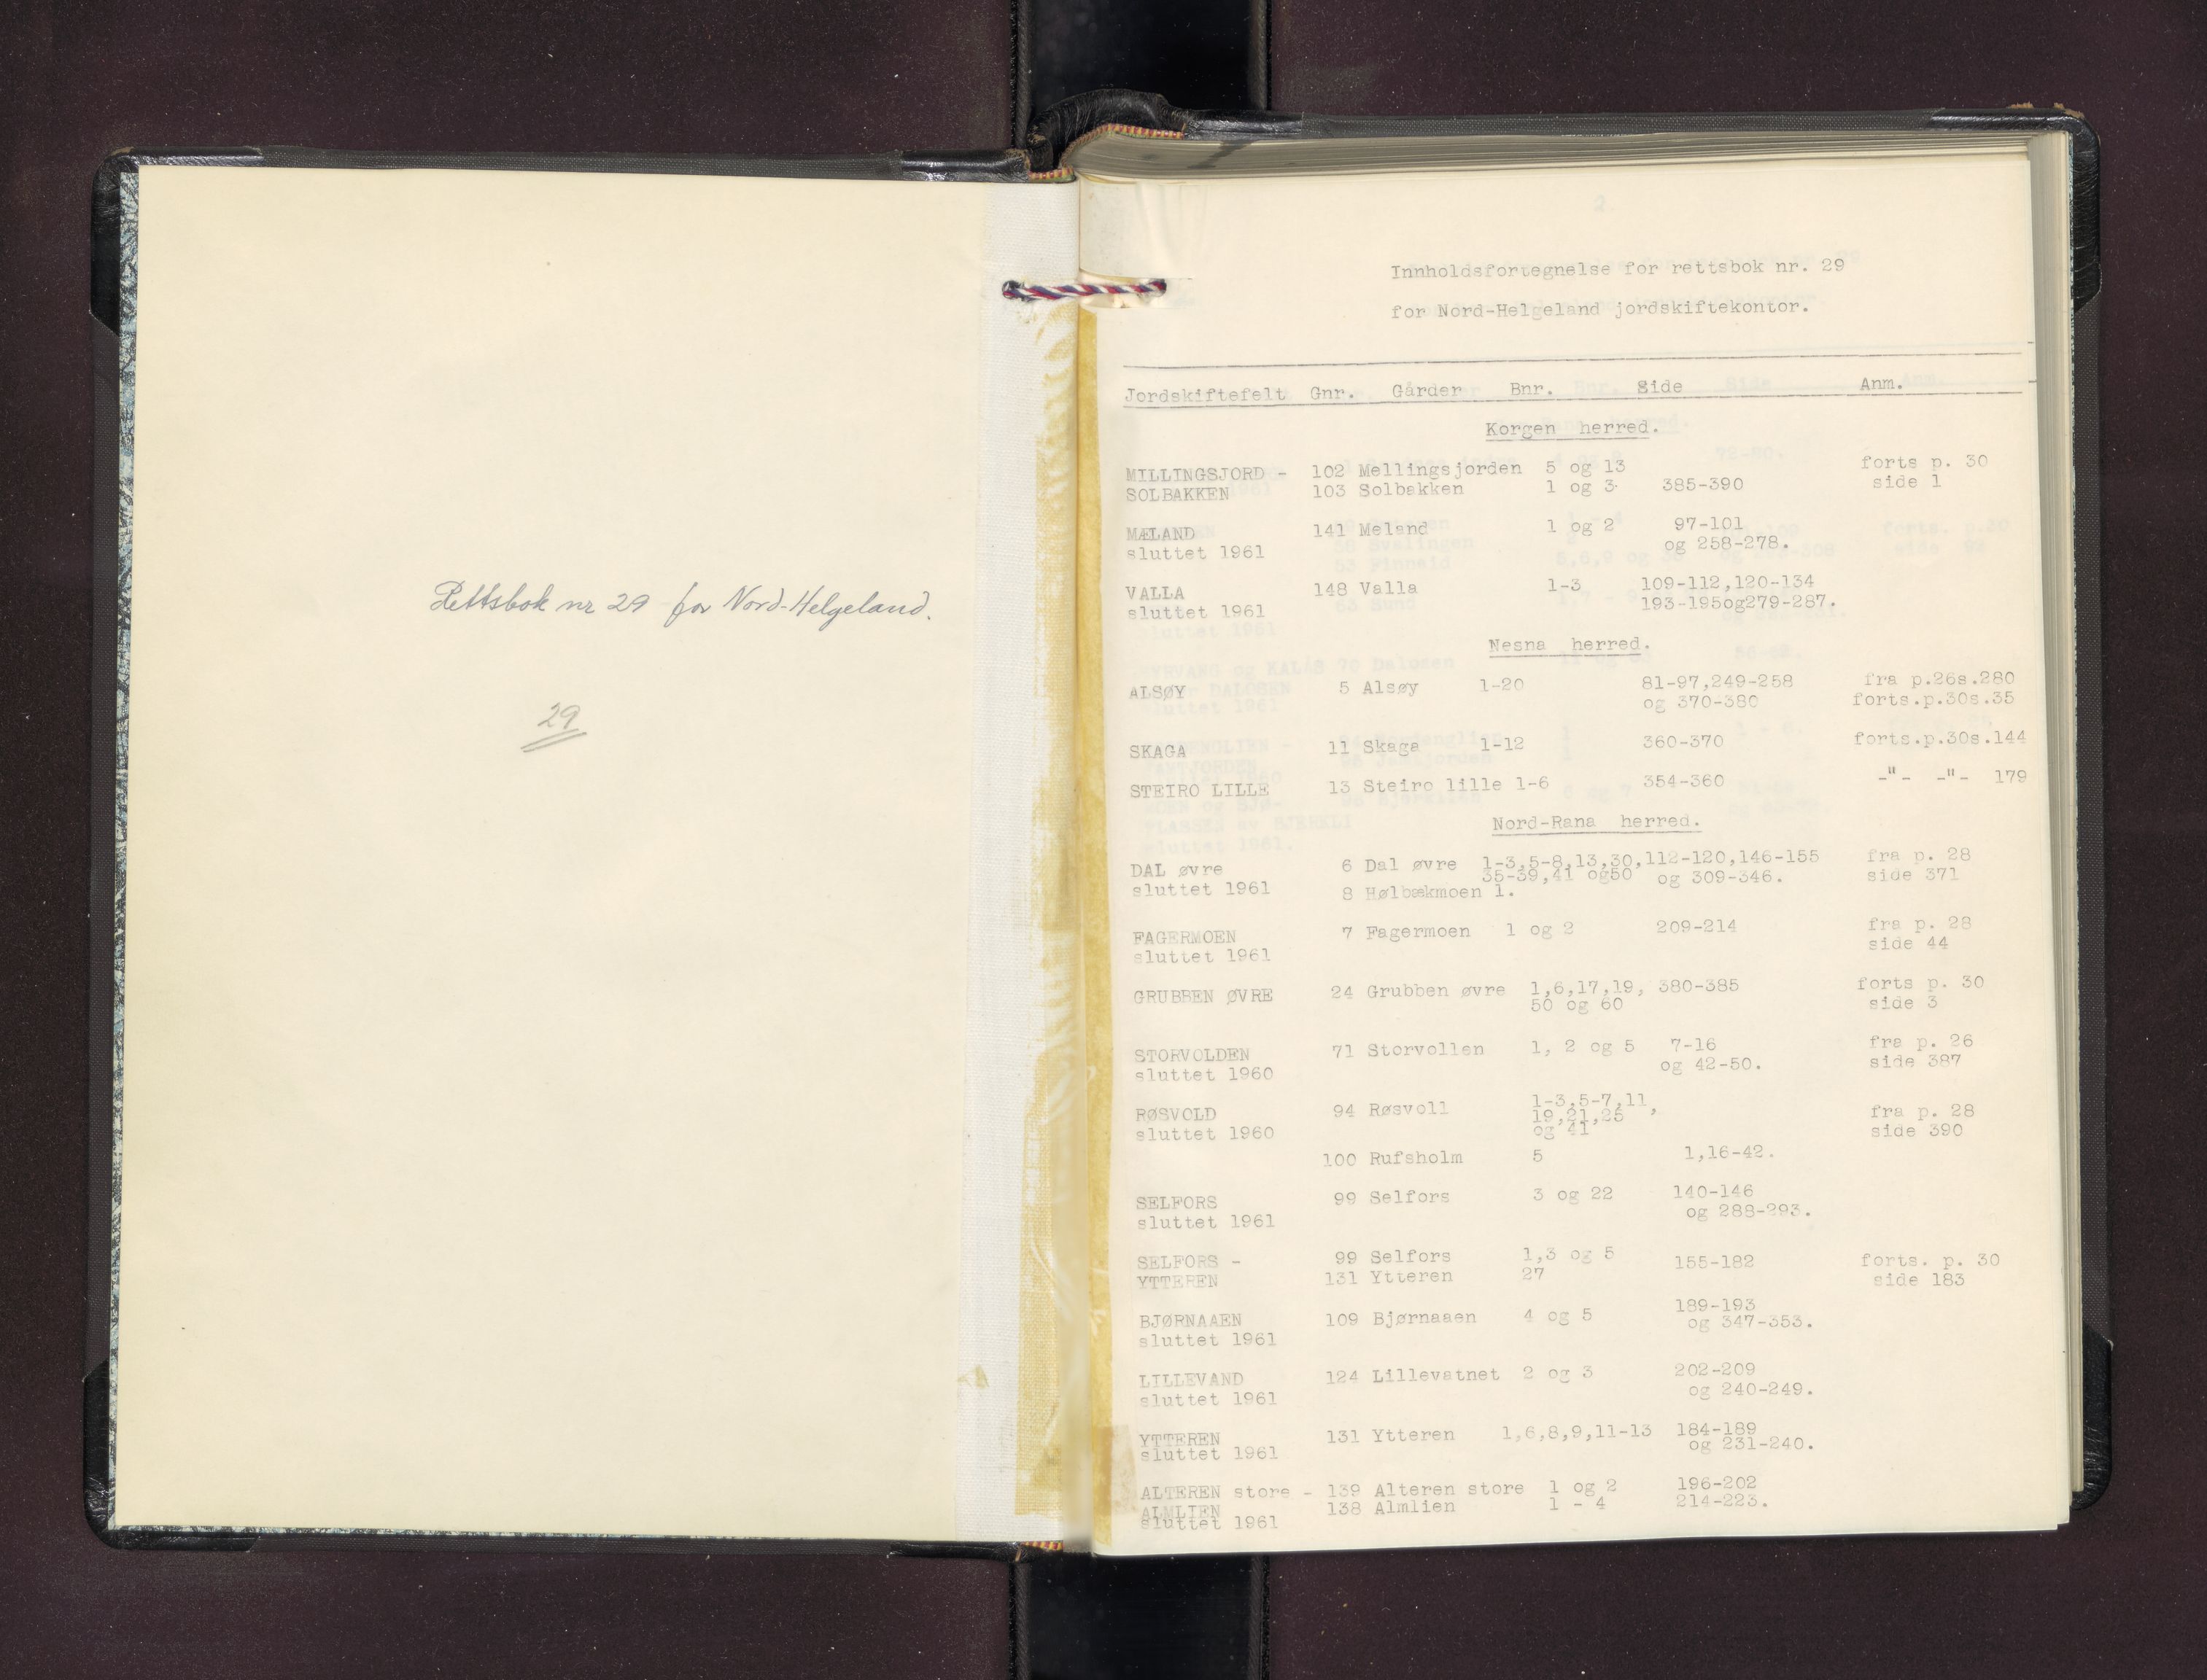 Rettsbok nr 29 for Nord-Helgeland.
29
Innholdsfortegnelse for rettsbok nr. 29
for Nord-Helgeland jordskiftekontor.
Jordskiftefelt Gnr. Gårder Bnr. Side Anm.
Korgen herred.
MILLINGSJORD - 102 Mellingsjorden 5 og 13 forts p. 30
SOLBAKKEN 103 Solbakken 1 og 3 385-390 side 1
MÆLAND 141 Meland 1 og 2 97-101
sluttet 1961 og 258-278.
VALLA 148 Valla 1-3 109-112,120-134
sluttet 1961 193-195og279-287.
Nesna herred.
ALSØY 5 Alsøy 1-20 81-97,249-258 fra p.26s.280
og 370-380 forts.p.30s.35
SKAGA 11 Skaga 1-12 360-370 forts.p.30s.144
STEIRO LILLE 13 Steiro lille 1-6 354-360 -"- -"- 179
Nord-Rana herred.
DAL øvre 6 Dal øvre 1-3,5-8,13,30,112-120,146-155 fra p. 28
35-39,41 og50 og 309-346. side 371
sluttet 1961 8 Hølbækmoen 1.
FAGERMOEN 7 Fagermoen 1 og 2 209-214 fra p. 28
sluttet 1961 side 44
GRUBBEN ØVRE 24 Grubben øvre 1,6,17,19, 380-385 forts p. 30
50 og 60 side 3
STORVOLDEN 71 Storvollen 1, 2 og 5 7-16 fra p. 26
sluttet 1960 og 42-50. side 387
RØSVOLD 94 Røsvoll 1-3,5-7,11, fra p. 28
19,21,25
sluttet 1960 og 41 side 390
100 Rufsholm 5 1,16-42.
SELFORS 99 Selfors 3 og 22 140-146
sluttet 1961 og 288-293.
SELFORS - 99 Selfors 1,3 og 5 155-182 forts. p. 30
YTTEREN 131 Ytteren 27 side 183
189-193
BJØRNAAEN 109 Bjørnaaen 4 og 5 og 347-353.
sluttet 1961
LILLEVAND 124 Lillevatnet 2 og 3 202-209
sluttet 1961 og 240-249.
YTTEREN 131 Ytteren 1,6,8,9,11-13 184-189
sluttet 1961 og 231-240.
ALTEREN store - 139 Alteren store 1 og 2 196-202
ALMLIEN 138 Almlien 1 - 4 214-223.
sluttet 1961